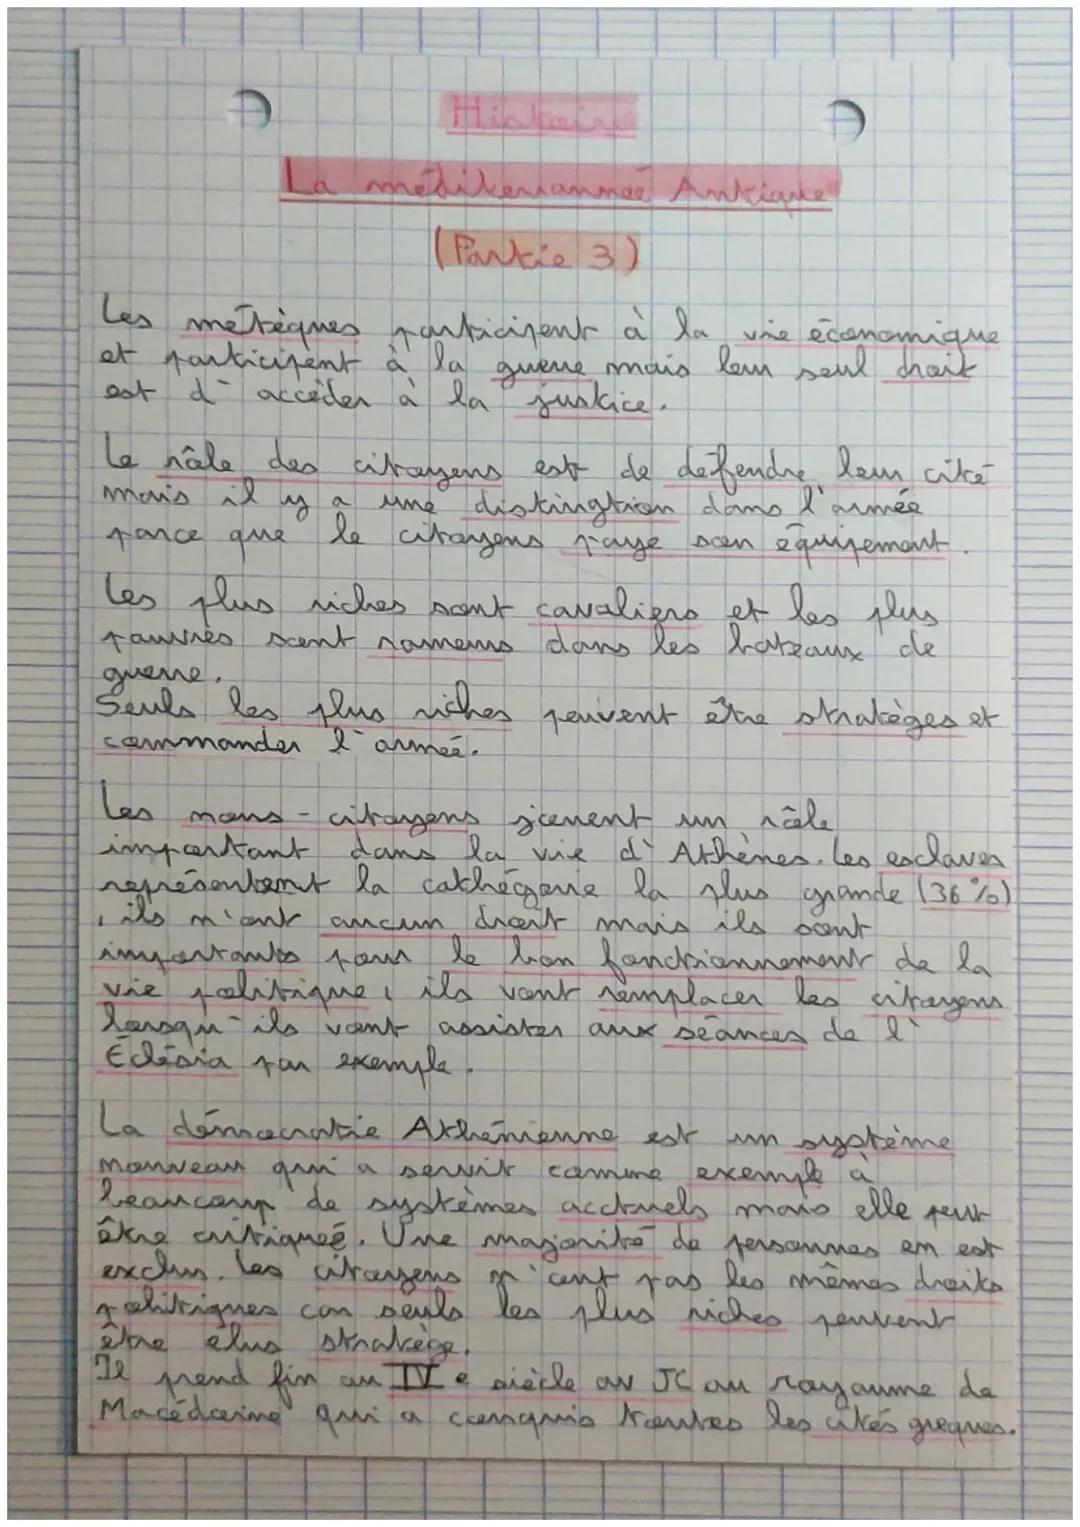 Histoire
La méditerrannée Antique
(Partie 3)
Les métèques participent à la vie économique
et participent à la guerre mais leur seul droit
est d'accéder à la justice.
Le rôle des citoyens est de défendre leur cité
mais il y a une distingtion dans l'armée
parce que le citoyens paye son équipement.
Les plus riches sont cavaliers et les plus
pauvres sont rameurs dans les bateaux de
guerre.
Seuls les plus riches peuvent être stratèges et
commander l'armée.
Les nons-citoyens jouent un rôle
important dans la vie d'Athènes. Les esclaves
représentent la cathégorie la plus grande (36%)
, ils n'ont aucun droit mais ils sont
importants pour le bon fonctionnement de la
vie politique, ils vont remplacer les citoyens
lorsqu'ils vont assister aux séances de l'
Éclésia par exemple.
La démocratie Athénienne est un système
nouveau qui a servit comme exemple à
beaucoup de systèmes acctuels mais elle peut
être critiqueé. Une majorité de personnes en est
exclus. Les citoyens n'ont pas les mêmes droits
politiques car seuls les plus riches peuvent
être élus stratège.
Il prend fin au IVe siècle av JC au royaume de
Macédoine qui a conquis toutes les cités greques.